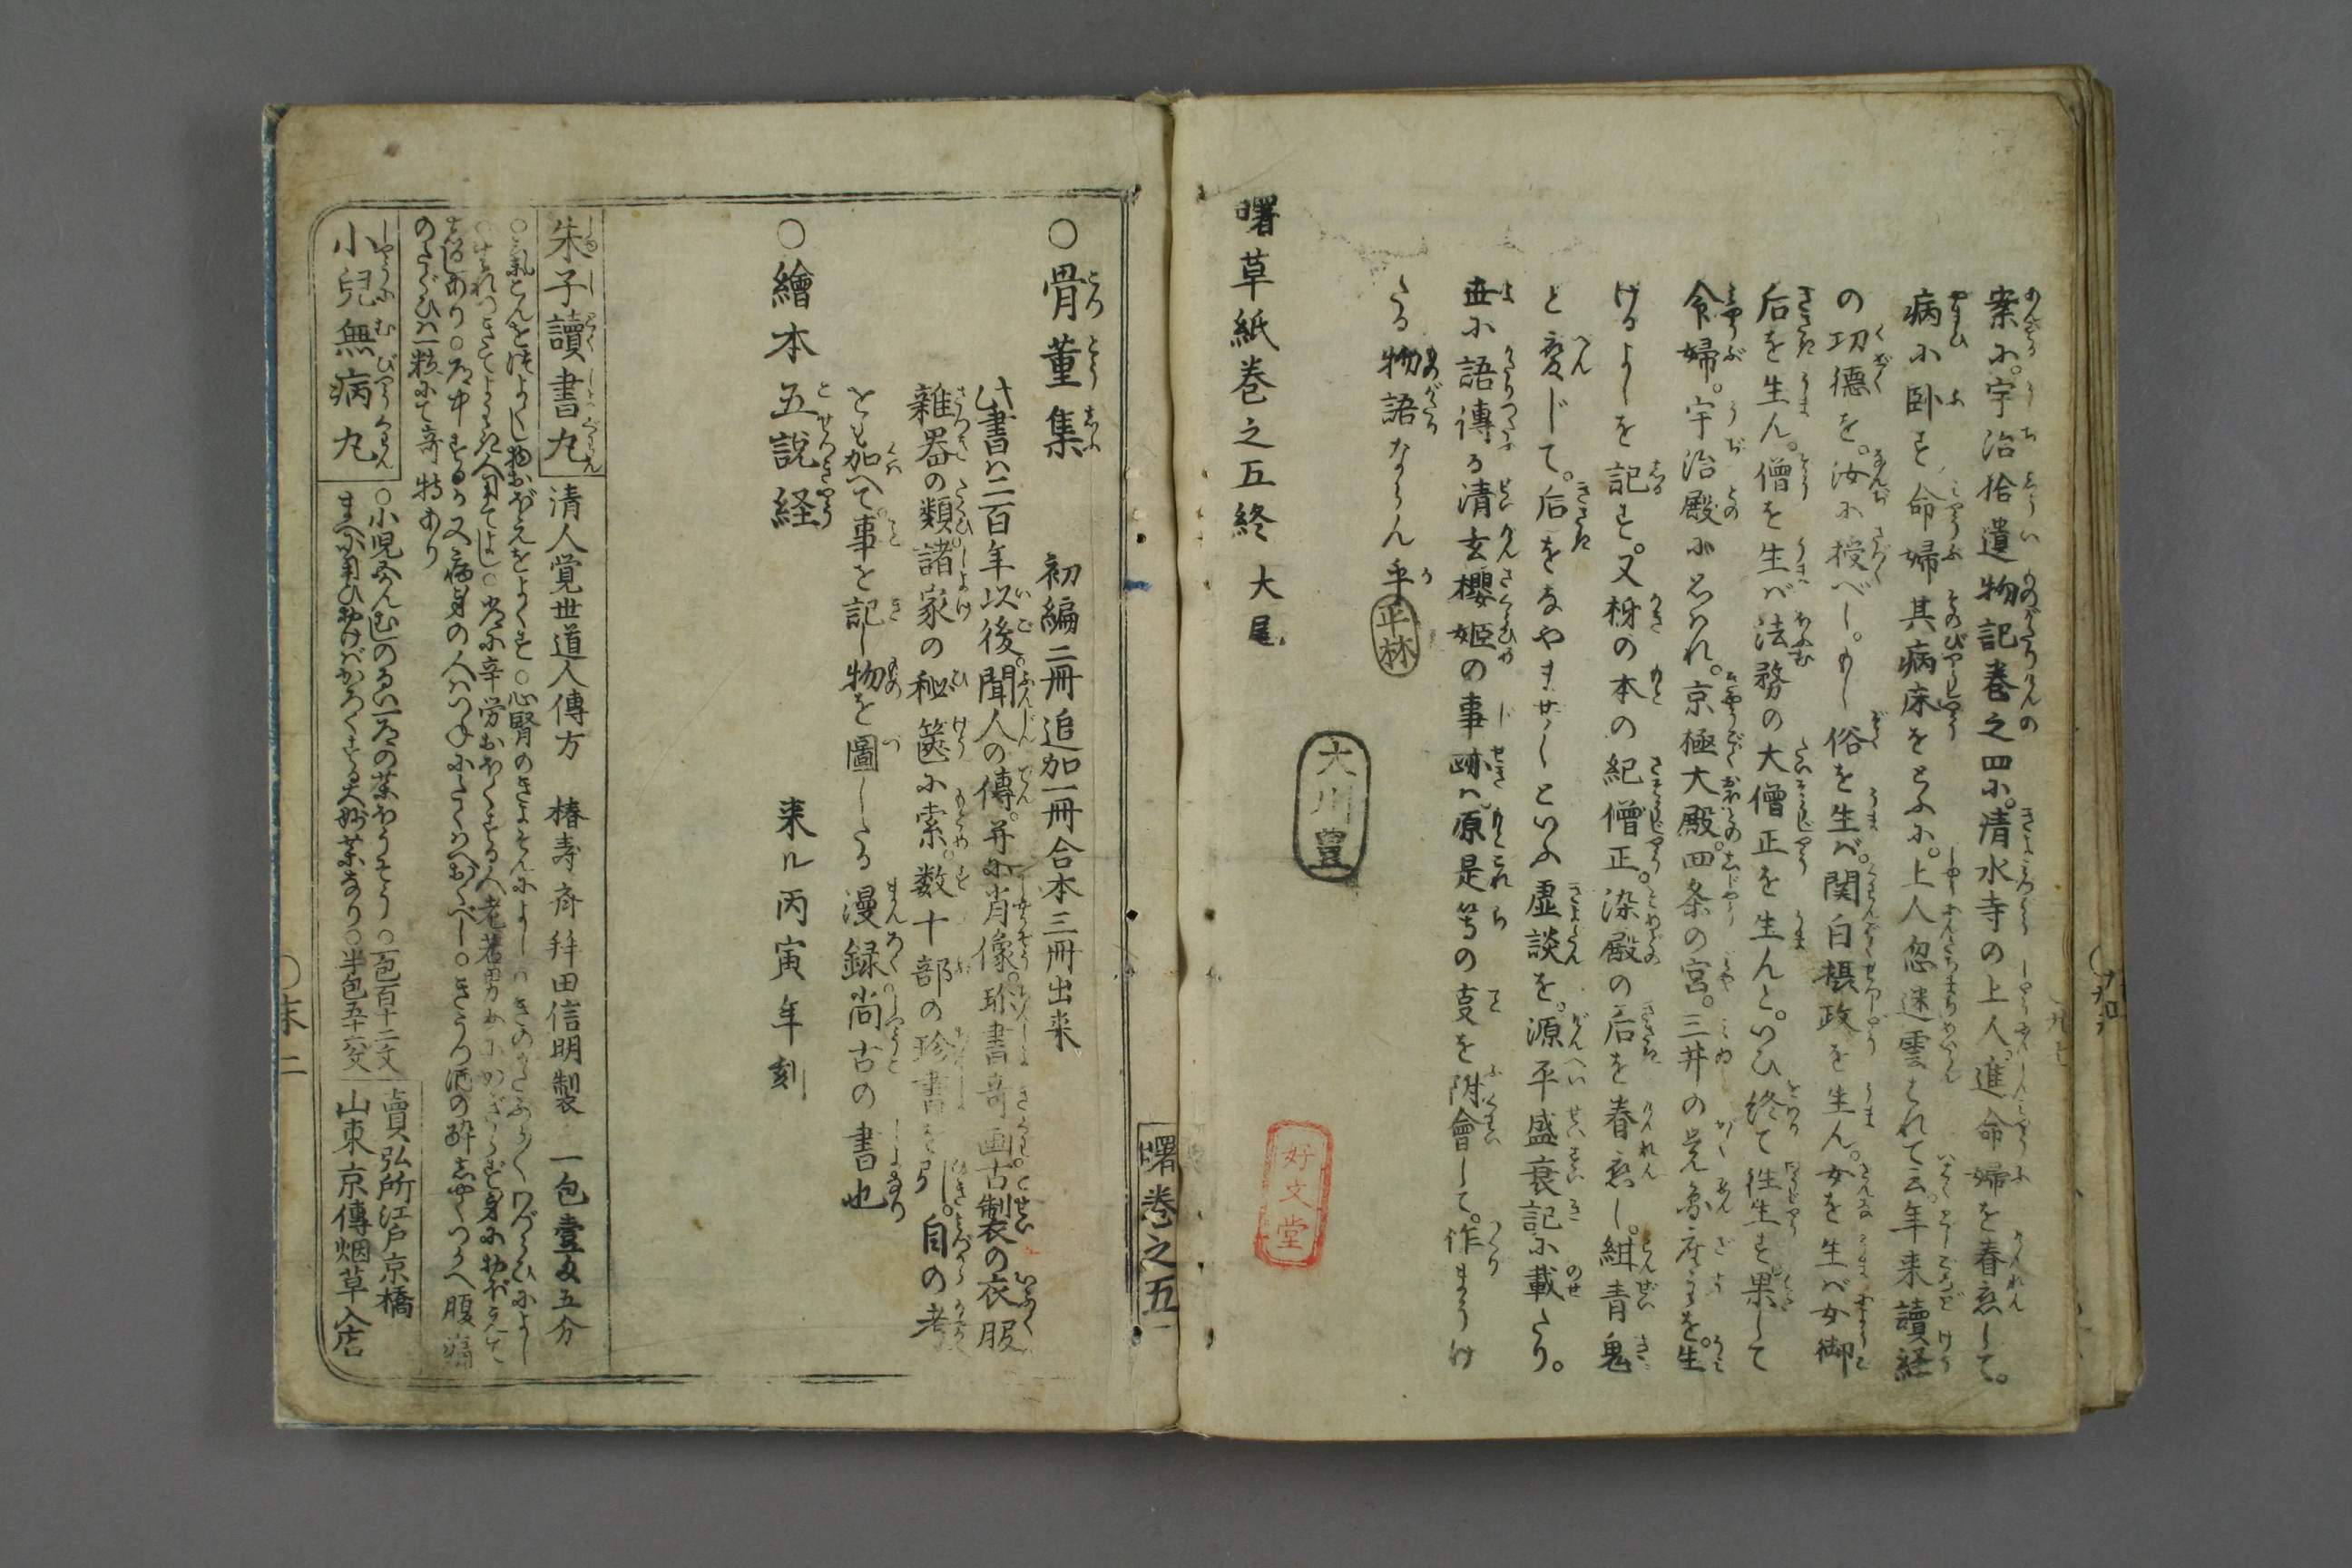 案に。宇治拾遺物記巻之四に。清水寺の上人。進命婦を春恋して。
病に卧す命婦其病床をとふに。上人忽迷雲はれて云。年来讀経
の功徳を。汝に授べし。もし俗を生バ。関白摂政を生ん。女を生バ女御
后を生ん。僧を生バ法務の大僧正を生んと。いひ終て往生す果して
命婦。宇治殿に思はれ。京極大殿。四条の宮。三井の覚圓座主を。生
けるよしを記す。又柿の本の紀僧正。染殿の后を春恋し。紺青鬼
と変じて。后をなやませしといふ虚談を。源平盛衰記に載たり。
世に語傳る清玄櫻姫の事跡ハ。原是等の支を附會して。作まうけ
たる物語ならん乎
平林
大川豊
好文堂
曙草紙巻之五終 大尾
曙巻之五
○骨董集 初編二冊追加一冊合本三冊出来
此書ハ二百年以後。聞人の傳。并に肖像。珎書奇画古製の衣服
雜器の類。諸家の秘篋に索。数十部の珍書を引。自の考
をも加へて。事を記し物を圖したる漫録。尚古の書也
○繪本五説経 来ル丙寅年刻
朱子讀書丸 清人覚世道人傳方 椿寿斉 拜田信明製 一包壹匁五分
○氣こんを津よくし物おぼえをよくす○心腎のきよそんによし
のたぐひハ一粒にて奇特あり
小兒無病丸
○一包百十二文
まへに用ひ
○半包五十六文
賣弘所江戸京橋
山東京傳烟草入店
○末二